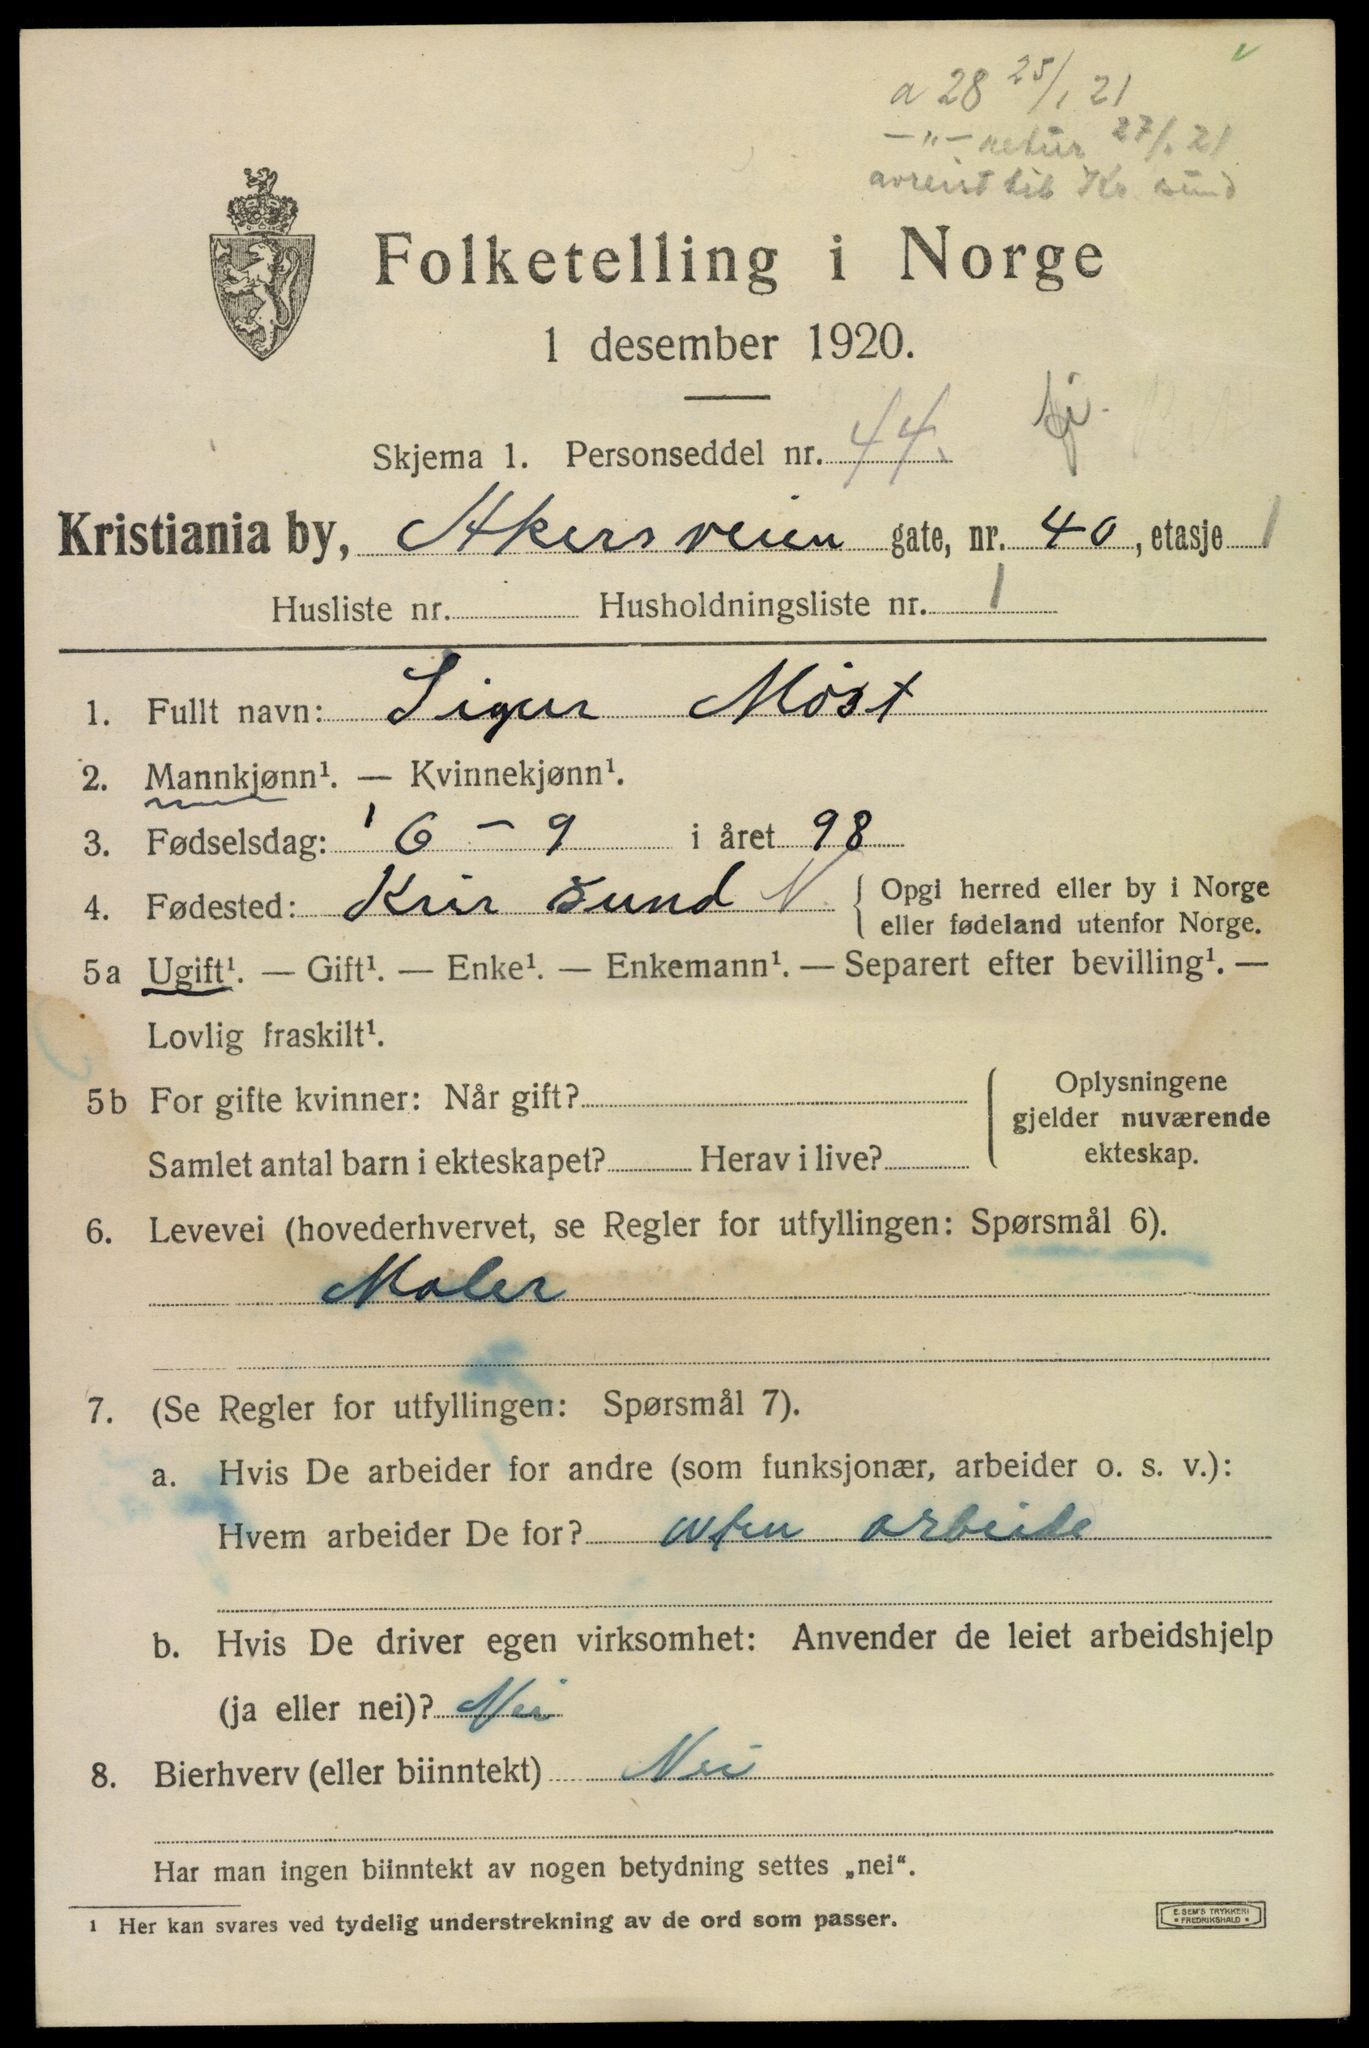 a 28 25/1 21
—„— retur 27/1 21
avreist til Kr. sund
Folketelling i Norge
1 desember 1920.
Skjema 1. Personseddel nr. 44.
Kristiania by, Akersveien gate, nr. 40, etasje 1
Husliste nr. Husholdningsliste nr. 1
1. Fullt navn: Sigur Møst
2. Mannkjønn¹. — Kvinnekjønn¹.
3. Fødselsdag: 6 – 9 i året 98
4. Fødested: Kris sund N. Opgi herred eller by i Norge
eller fødeland utenfor Norge.
5a Ugift¹. — Gift¹. — Enke¹. — Enkemann¹. — Separert efter bevilling¹. —
Lovlig fraskilt¹.
5b For gifte kvinner: Når gift?
Samlet antal barn i ekteskapet? Herav i live?
Oplysningene
gjelder nuværende
ekteskap.
6. Levevei (hovederhvervet, se Regler for utfyllingen: Spørsmål 6).
Maler
7. (Se Regler for utfyllingen: Spørsmål 7).
a. Hvis De arbeider for andre (som funksjonær, arbeider o. s. v.):
Hvem arbeider De for? uten arbeide
b. Hvis De driver egen virksomhet: Anvender de leiet arbeidshjelp
(ja eller nei)? Nei
8. Bierhverv (eller biinntekt) Nei
Har man ingen biinntekt av nogen betydning settes „nei“.
¹ Her kan svares ved tydelig understrekning av de ord som passer.
E. SEM'S TRYKKERI
• FREDRIKSHALD •